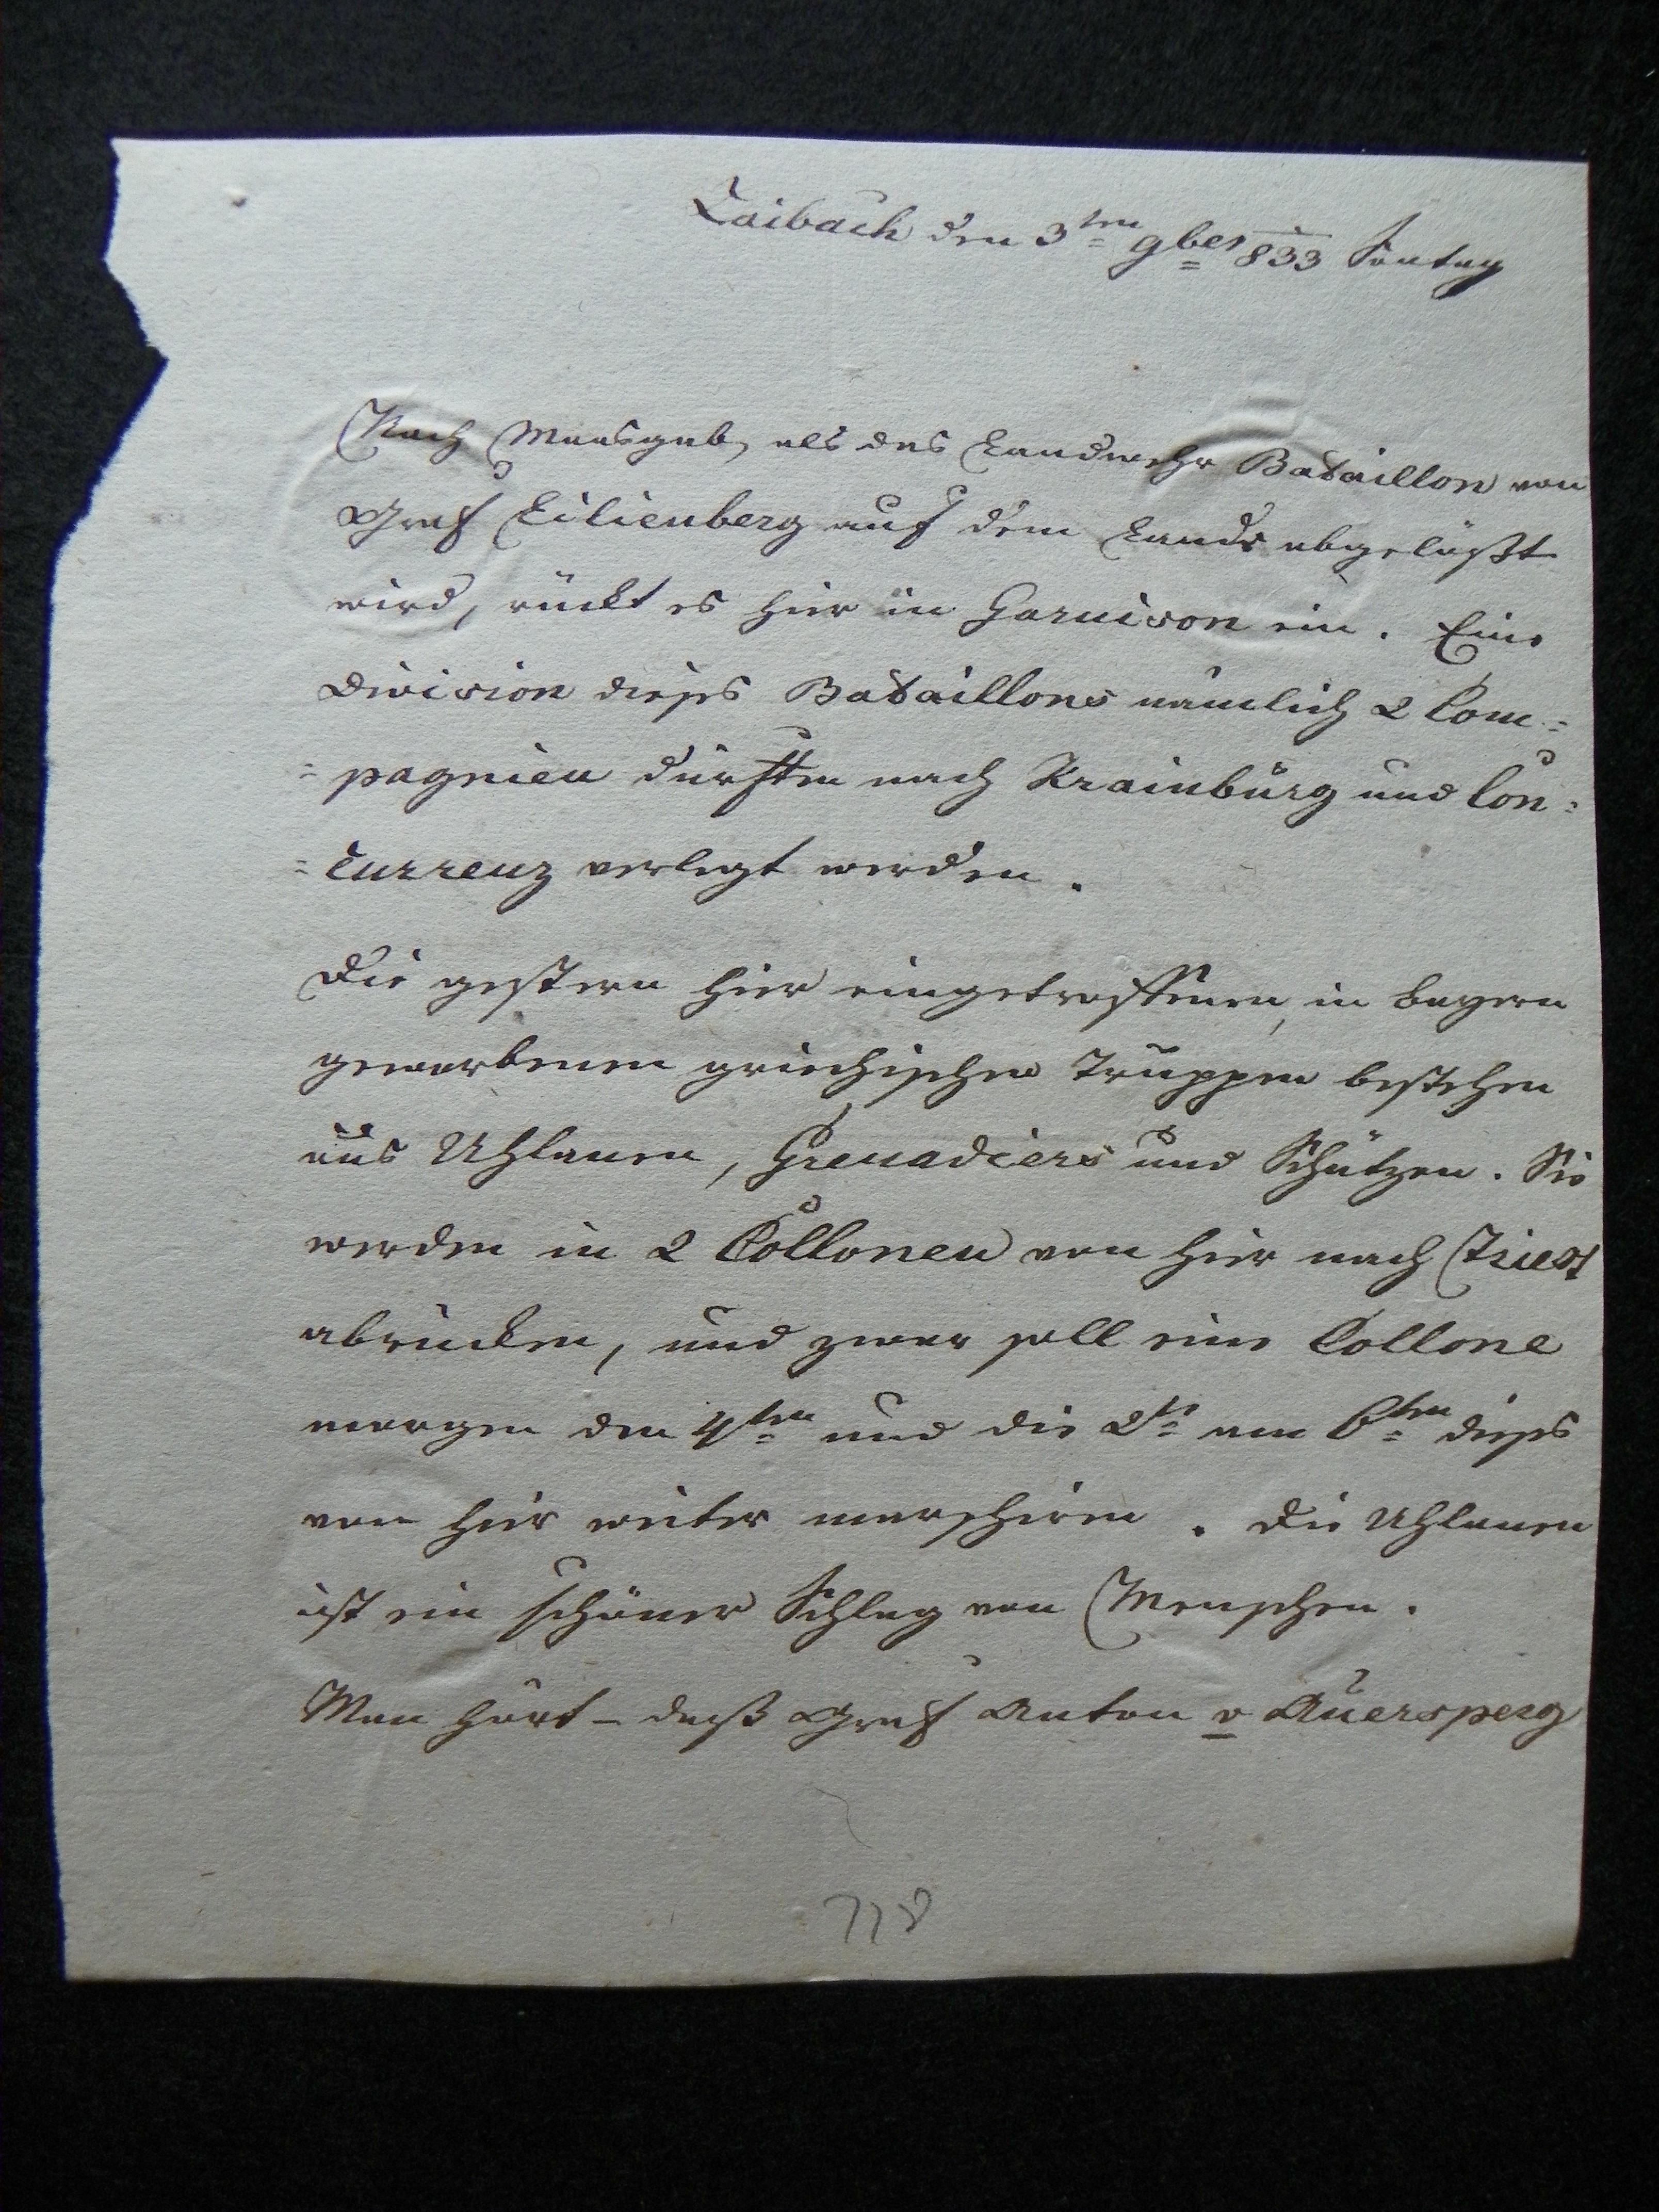 Laibach den 3ten 9ber 833 Sontag
Nach Maasgab, als das Landwehr Bataillon von
Graf Lilienberg auf dem Lande abgelößt
wird, rückt es hier in Garnison ein. Eine
Division dieses Bataillons nämlich 2 Com=
=pagnien dürften nach Krainburg und Con=
=currenz verlegt werden.
Die gestern hier eingetroffenen, in Bayern
geworbenen griechischen Truppen bestehen
aus Uhlanen, Grenadiers und Schützen. Sie
werden in 2 Collonen von hier nach Triest
abrücken, und zwar soll eine Collone
morgen den 4ten und die 2te am 6ten dieses
von hier weiter marschiren. Die Uhlanen
ist ein schöner Schlag von Menschen.
Man hört – daß Graf Anton v Auersperg
718